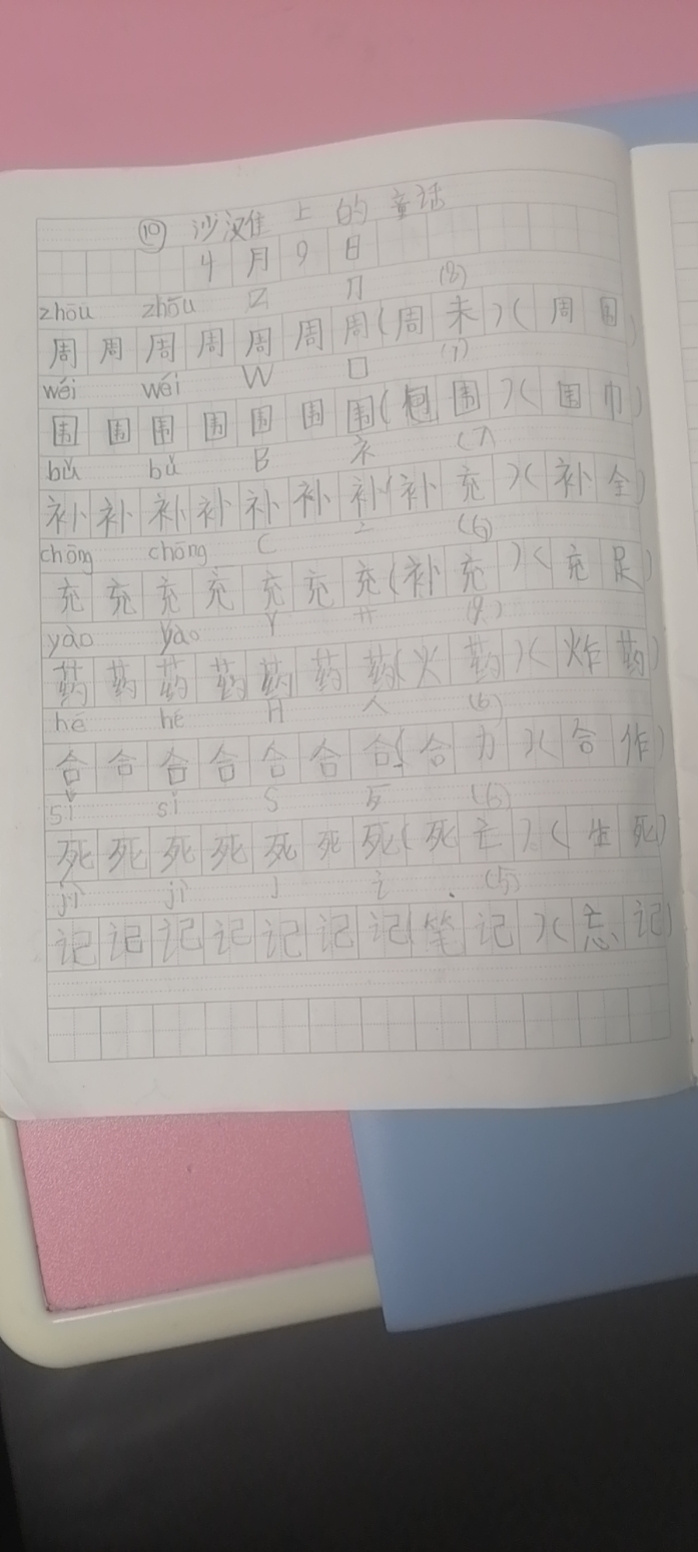 ⑩ 沙滩上的童话
4月9日
zhōu zhōu Z 冂 (8)
周周周周周周周(周末)(周围)
wéi wéi W 囗 (7)
围围围围围围围(包围)(围巾)
bǔ bǔ B 衤 (7)
补补补补补补补(补充)(补全)
chōng chōng C 亠 (6)
充充充充充充充(补充)(充足)
yào yào Y 艹 (9)
药药药药药药药(火药)(炸药)
hé hé H 人 (6)
合合合合合合合(合力)(合作)
sǐ sǐ S 歹 (6)
死死死死死死死(死亡)(生死)
jì jì J 讠 (5)
记记记记记记记(笔记)(忘记)